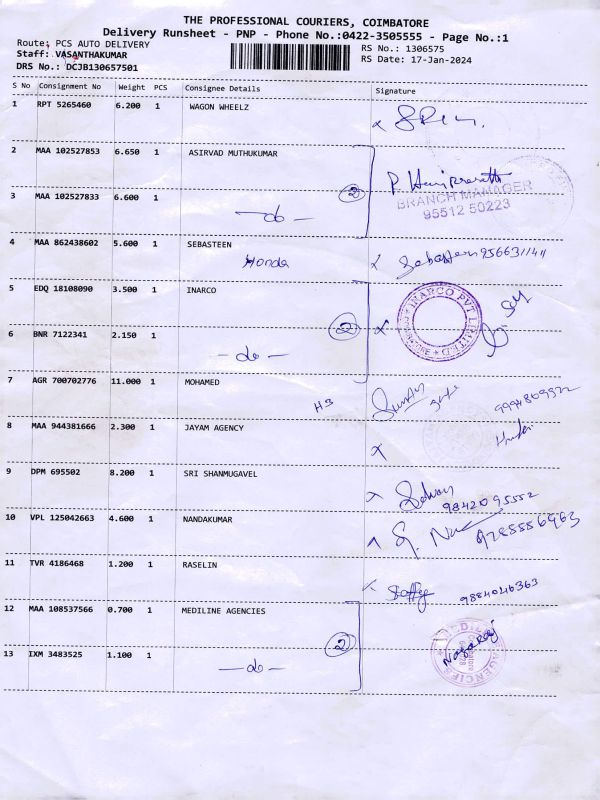 THE PROFESSIONAL COURIERS, COIMBATORE
Delivery Runsheet - PNP - Phone No.:0422-3505555 - Page No.:1
Route: PCS AUTO DELIVERY
Staff: VASANTHAKUMAR
DRS No.: DCJB130657501
RS No.: 1306575
RS Date: 17-Jan-2024
S No Consignment No Weight PCS Consignee Details Signature
1 RPT 5265460 6.200 1 WAGON WHEELZ
2 MAA 102527853 6.650 1 ASIRVAD MUTHUKUMAR
BRANCH MANAGER
95512 50223
3 MAA 102527833 6.600 1 -do- 2
4 MAA 862438602 5.600 1 SEBASTEEN
Honda
5 EDQ 18108090 3.500 1 INARCO
INARCO PVT LIMITED
6 BNR 7122341 2.150 1 -do- 2
7 AGR 700702776 11.000 1 MOHAMED
H3
8 MAA 944381666 2.300 1 JAYAM AGENCY
9 DPM 695502 8.200 1 SRI SHANMUGAVEL
9842095552
10 VPL 125042663 4.600 1 NANDAKUMAR
11 TVR 4186468 1.200 1 RASELIN
9884046363
12 MAA 108537566 0.700 1 MEDILINE AGENCIES
2
Nagaraj
13 IXM 3483525 1.100 1 -do-